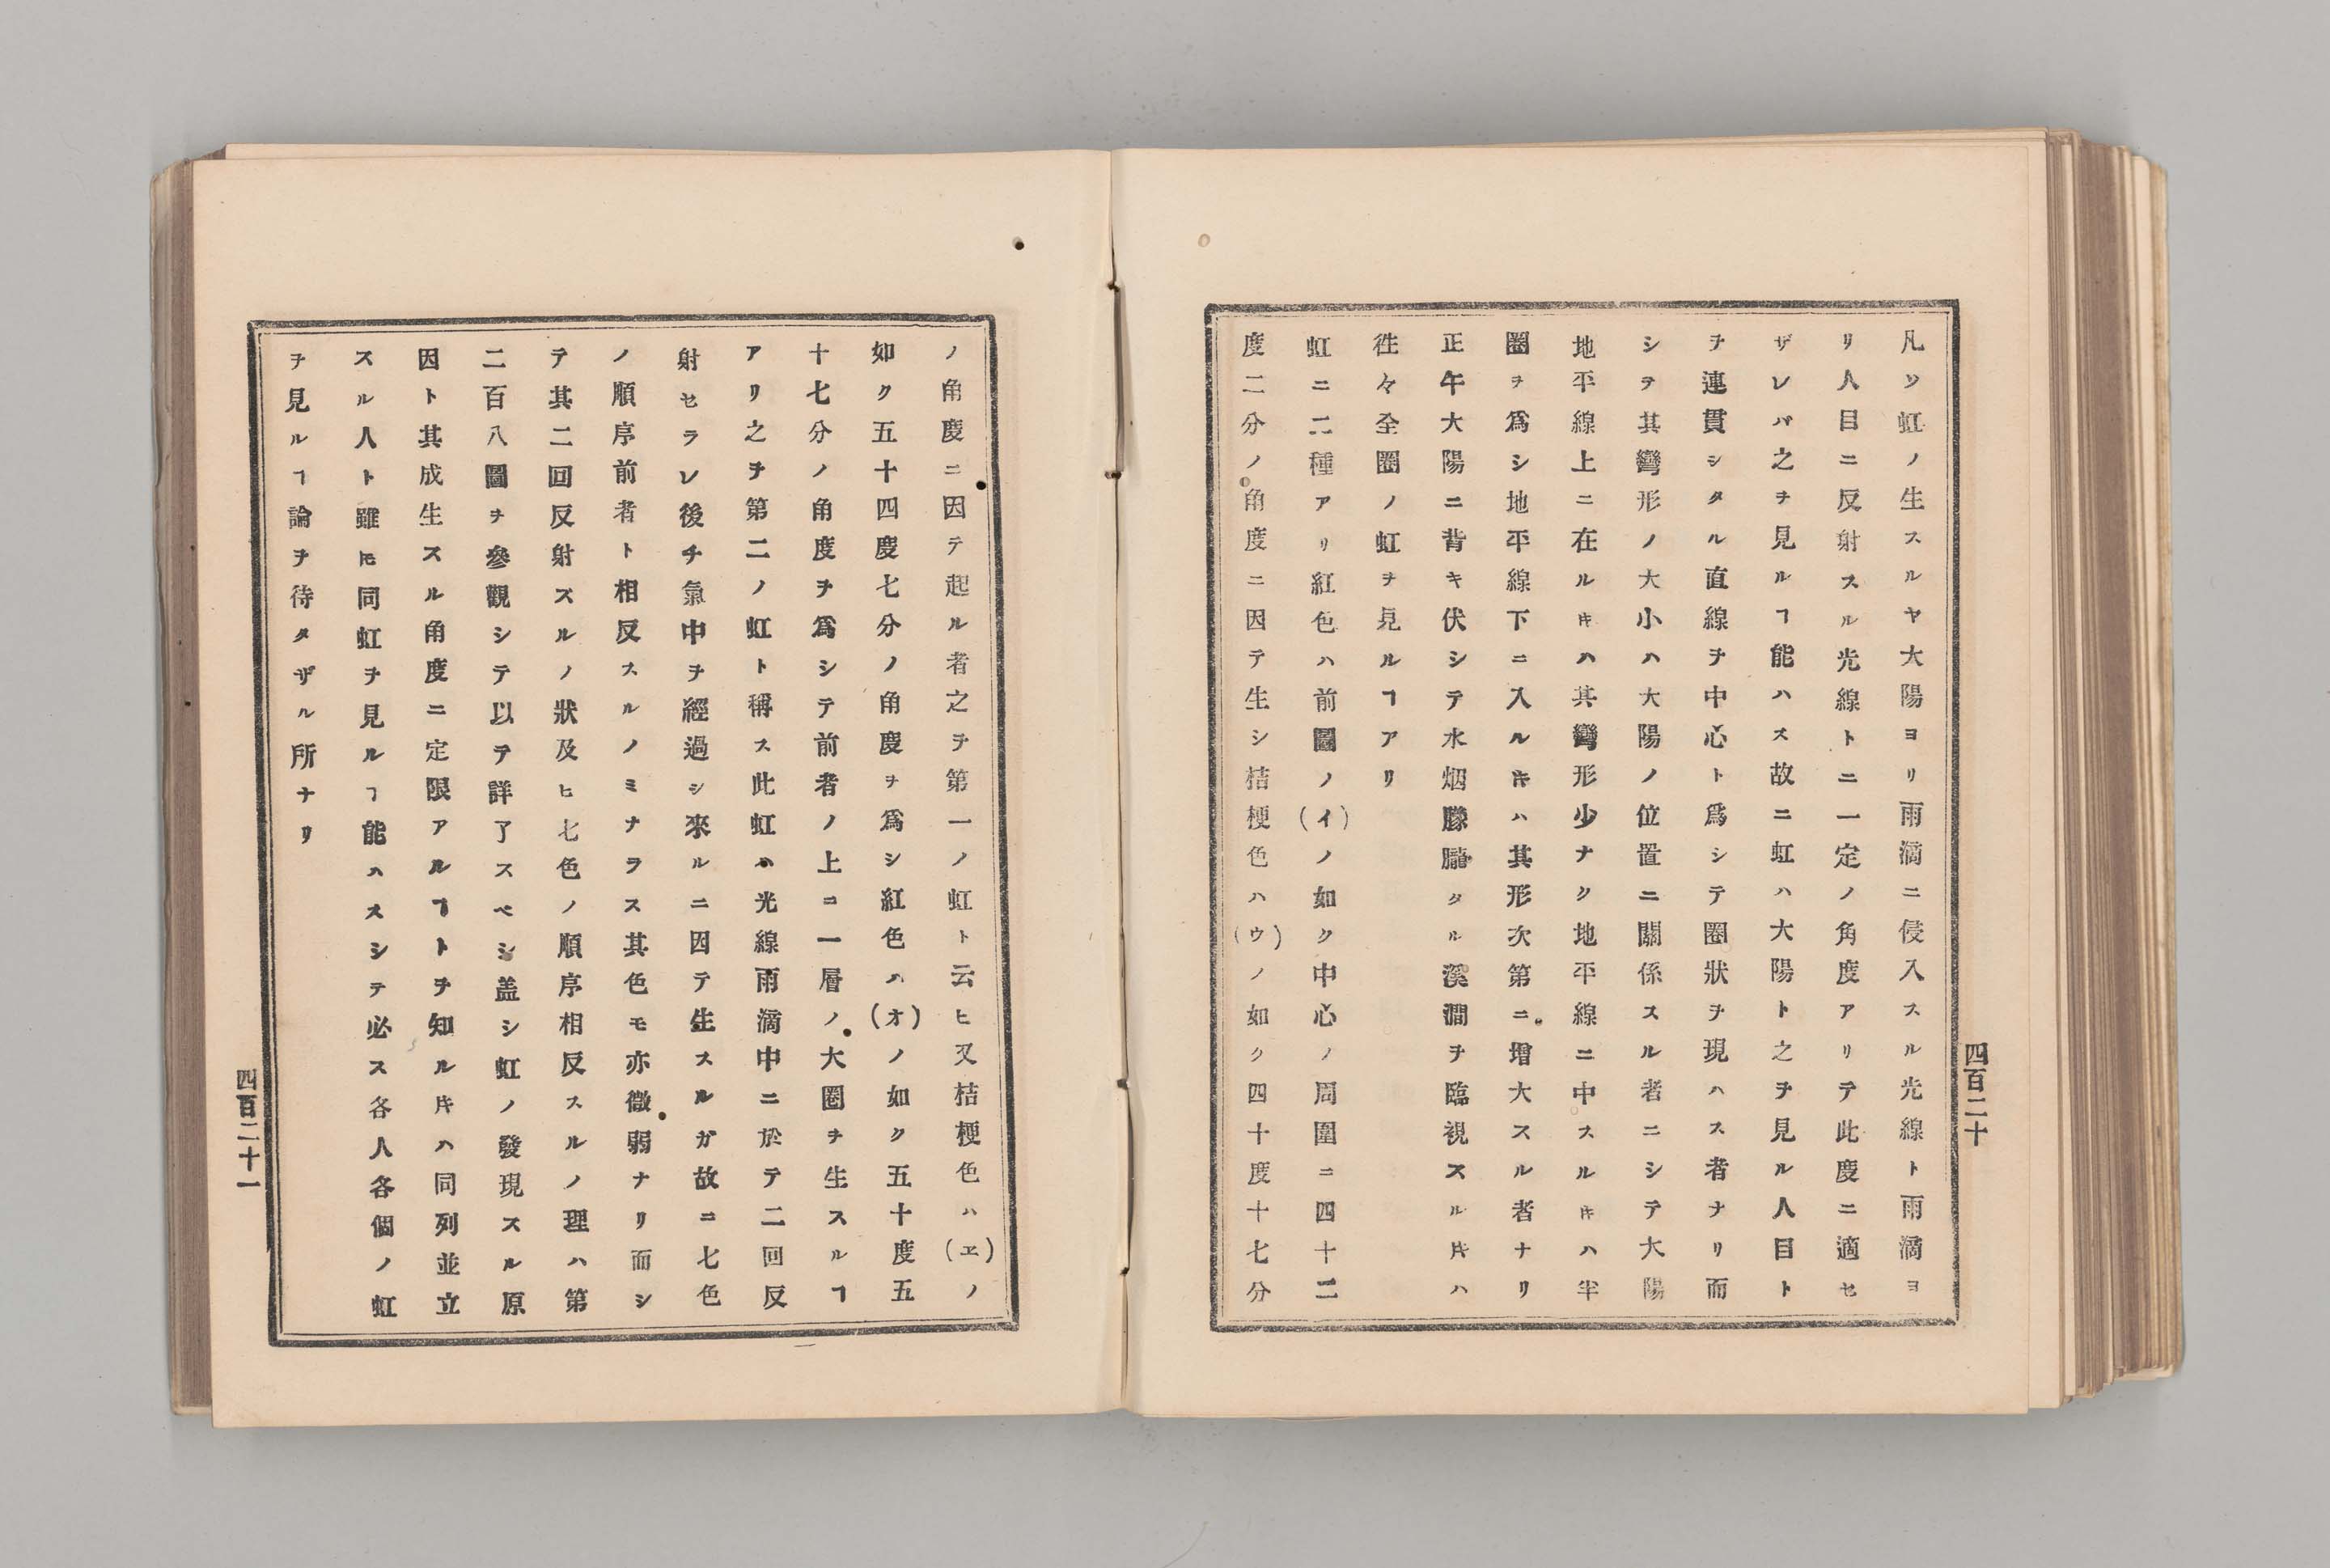 凡ソ虹ノ生スルヤ大陽ヨリ雨滴ニ侵入スル光線ト雨滴ヨ
リ人目ニ反射スル光線トニ一定ノ角度アリテ此度ニ適セ
ザレバ之ヲ見ルヿ能ハス故ニ虹ハ大陽ト之ヲ見ル人目ト
ヲ連貫シタル直線ヲ中心ト爲シテ圈狀ヲ現ハス者ナリ而
シテ其彎形ノ大小ハ大陽ノ位置ニ關係スル者ニシテ大陽
地平線上ニ在ルキハ其彎形少ナク地平線ニ中スルキハ半
圈ヲ爲シ地平線下ニ入ルキハ其形次第ニ增大スル者ナリ
正午大陽ニ背キ伏シテ水烟朦朧タル溪澗ヲ臨視スル片ハ
徃々全圈ノ虹ヲ見ルヿアリ
虹ニ二種アリ紅色ハ前圖ノ(イ)ノ如ク中心ノ周圍ニ四十二
度二分ノ角度ニ因テ生シ桔梗色ハ(ウ)ノ如ク四十度十七分
四百二十
ノ角度ニ因テ起ル者之ヲ第一ノ虹ト云ヒ又桔梗色ハ(ヱ)ノ
如ク五十四度七分ノ角度ヲ爲シ紅色ハ(オ)ノ如ク五十度五
十七分ノ角度ヲ爲シテ前者ノ上ニ一層ノ大圈ヲ生スルヿ
アリ之ヲ第二ノ虹ト稱ス此虹ハ光線雨滴中ニ於テ二回反
射セラレ後チ氣中ヲ經過シ來ルニ因テ生スルガ故ニ七色
ノ順序前者ト相反スルノミナラス其色モ亦微弱ナリ而シ
テ其二回反射スルノ狀及ヒ七色ノ順序相反スルノ理ハ第
二百八圖ヲ參觀シテ以テ詳了スベシ盖シ虹ノ發現スル原
因ト其成生スル角度ニ定限アルヿトヲ知ル片ハ同列並立
スル人ト雖𪜈同虹ヲ見ルヿ能ハスシテ必ス各人各個ノ虹
ヲ見ルヿ論ヲ待タザル所ナリ
四百二十一